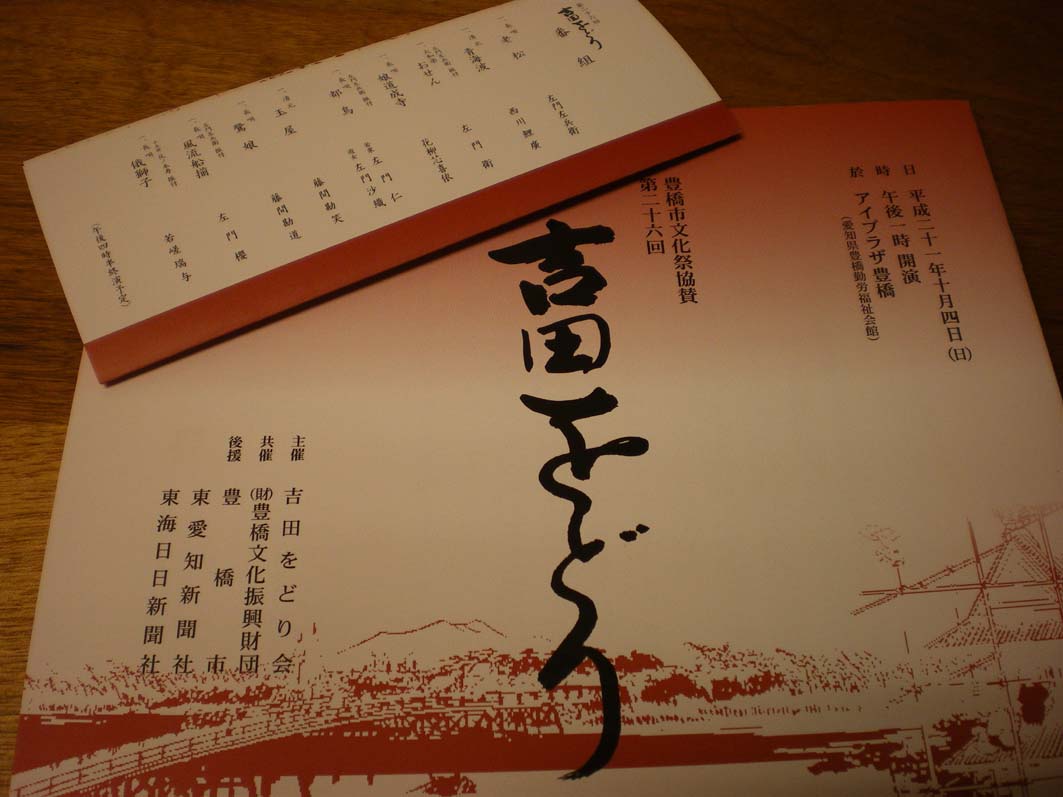 第二十六回
吉田をどり
番組
一、長唄 老松
左門左兵衛
一、清元 青海波
西川鯉廣
左門左兵衛 振付
一、大和楽 おせん
左門衛
一、長唄 娘道成寺
花柳芯喜依
左門左兵衛 振付
一、長唄 都鳥
左門仁
左門沙織
一、清元 玉屋
藤間勘笑
一、長唄 鷺娘
藤間勘道
左門左兵衛 振付
一、長唄 風流船揃
左門櫻
一、長唄 俄獅子
若嵯瑞与
(午後四時半終演予定)
日 平成二十一年十月四日(日)
時 午後一時開演
於 アイプラザ豊橋
(愛知県豊橋勤労福祉会館)
豊橋市文化祭協賛
第二十六回
吉田をどり
主催 吉田をどり会
共催 (財)豊橋文化振興財団
後援 豊橋市
東愛知新聞社
東海日日新聞社